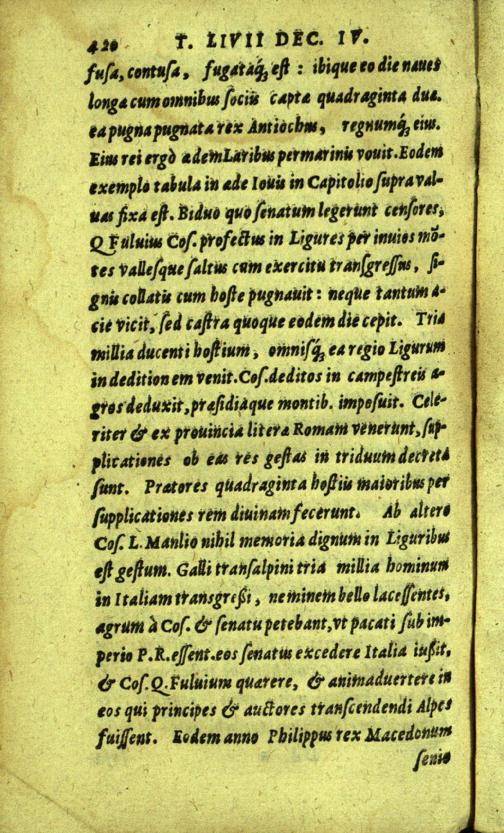 420 T. LIVII DEC. IV.
fusa, contusa, fugatáq́; est : ibique eo die naues
longa cum omnibus sociis capta quadraginta dua.
ea pugna pugnata rex Antiochus, regnumq́; eius.
Eius rei ergò ædem Laribus permarinis vouit. Eodem
exemplo tabula in æde Iouis in Capitolio supra val-
uas fixa est. Biduo quo senatum legerunt censores,
Q Fuluius Cos. profectus in Ligures per inuios mō-
tes vallesque saltus cum exercitu transgressus, si-
gnis collatis cum hoste pugnauit : neque tantum a-
cie vicit, sed castra quoque eodem die cepit. Tria
millia ducenti hostium, omnisq́; ea regio Ligurum
in deditionem venit. Cos. deditos in campestreis a-
gros deduxit, præsidiáque montib. imposuit. Cele-
riter & ex prouincia litera Romam venerunt, sup-
plicationes ob eas res gestas in triduum decreta
sunt. Prætores quadraginta hostiis maioribus per
supplicationes rem diuinam fecerunt. Ab altero
Cos. L. Manlio nihil memoria dignum in Liguribus
est gestum. Galli transalpini tria millia hominum
in Italiam transgreßi, neminem bello lacessentes,
agrum à Cos. & senatu petebant, vt pacati sub im-
perio P.R. essent. eos senatus excedere Italia iußit,
& Cos. Q. Fuluium quærere, & animaduertere in
eos qui principes & auctores transcendendi Alpes
fuissent. Eodem anno Philippus rex Macedonum
senio